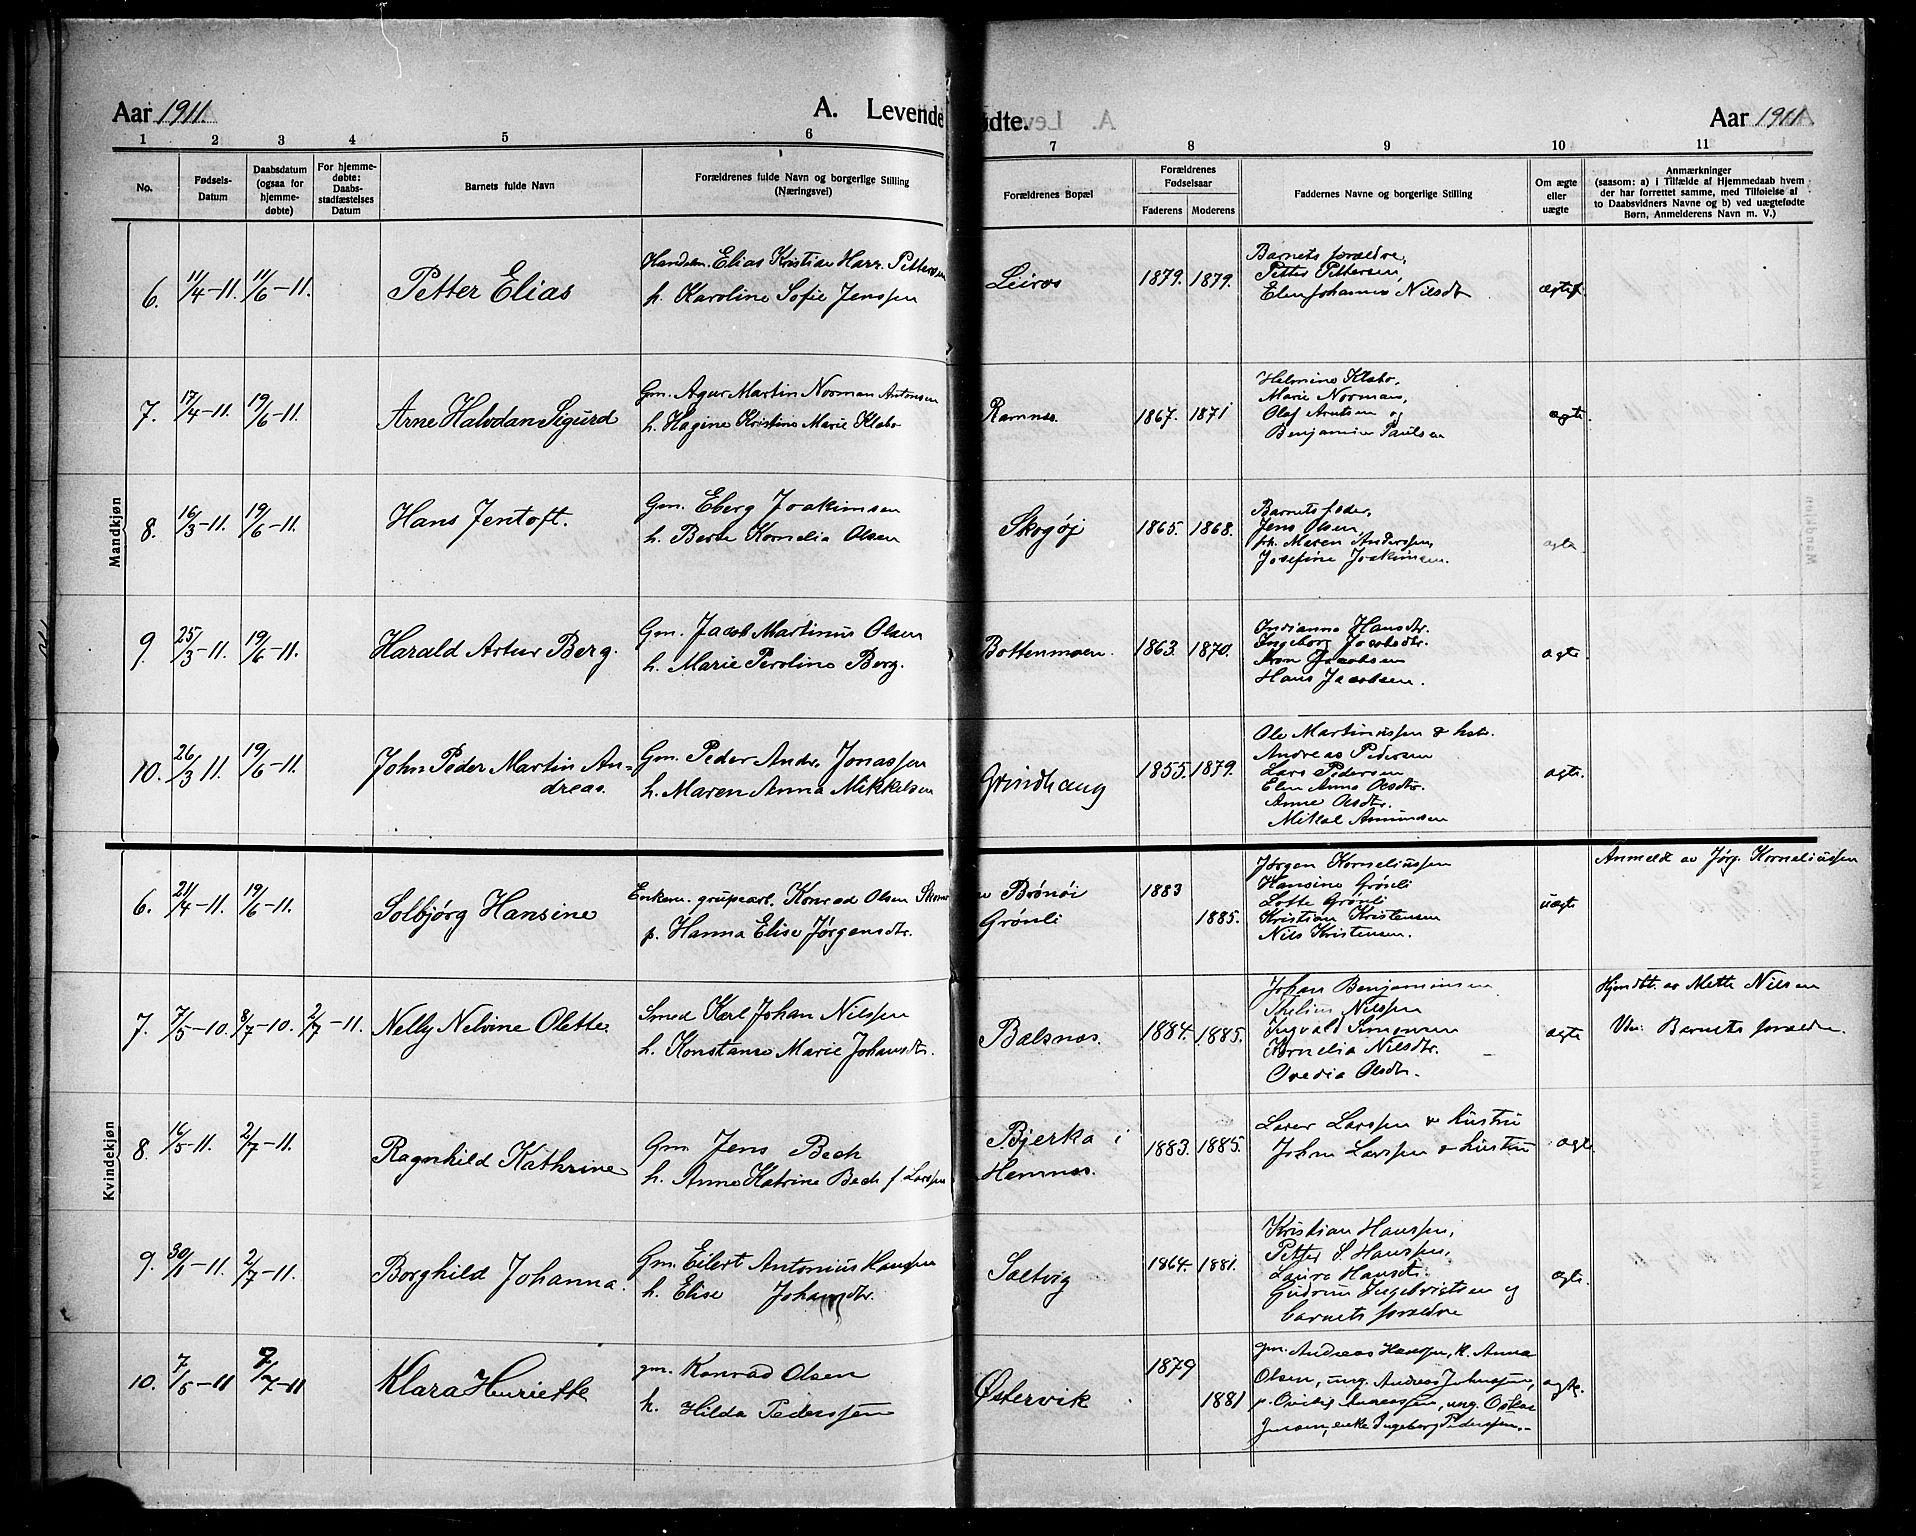 Aar 1911. A. Levendefødte. Aar 1911.
1 2 3 4 5 6 7 8 9 10 11
No.
Fødsels-
Datum
Daabsdatum
(ogsaa for
hjemme-
døbte)
For hjemme-
døbte:
Daabs-
stadfæstelses
Datum
Barnets fulde Navn
Forældrenes fulde Navn og borgerlige Stilling
(Næringsvei)
Forældrenes Bopæl
Forældrenes
Fødselsaar
Faderens Moderens
Faddernes Navne og borgerlige Stilling
Om ægte
eller
uægte
Anmærkninger
(saasom: a) i Tilfælde af Hjemmedaab hvem
der har forrettet samme, med Tilføielse af
to Daabsvidners Navne og b) ved uægtefødte
Børn, Anmelderens Navn m. V.)
Mandkjøn
6. 11/4-11. 11/6-11. Petter Elias
Handelsm. Elias Kristian Harr. Pettersen
h. Karoline Sofie Jenssen
Leiros 1879. 1879.
Barnets forældre,
Petter Pettersen,
Elen Johanna Nilsdtr
ægte
7. 17/4-11. 19/6-11. Arne Halvdan Sigurd
Gm. Agur Martin Norman Antonsen
h. Hagine Kristine Marie Klabo
Ramnes. 1867. 1871
Helmine Klabo,
Marie Norman,
Olaf Arntsen og
Benjamin Paulsen
ægte
8. 16/3-11. 19/6-11. Hans Jentoft.
Gm. Eberg Joakimsen
h. Berte Kornelia Olsen
Skogøj 1865. 1868.
Barnets fader,
Jens Olsen,
Maren Anderssen,
Josefine Joakimsen.
ægte
9. 25/3-11. 19/6-11. Harald Artur Berg.
Gm. Jacob Martinus Olsen
h. Marie Peroline Berg.
Bottenmoen. 1863. 1870.
Indianna Hansdtr.
Ingeborg Jacobsdtr.
Aron Jacobsen
Hans Jacobsen.
ægte
10. 26/3 11. 19/6-11. John Peder Martin An-
dreas.
Gm. Peder Andr. Jonassen
h. Maren Anna Mikkelsen
Grindhaug 1855. 1879.
Ole Martinussen & hstr.
Andreas Pedersen
Lars Pedersen
Elen Anna Olsdtr.
Anne Olsdtr.
Mikal Amundsen
ægte
Kvindekjøn
6. 21/4-11. 19/6-11. Solbjørg Hansine
Enkem. grubearb. Konrad Olsen
p. Hanna Elise Jørgensdtr.
Brønøi
Grønli
1883
1885.
Jørgen Korneliussen
Hansine Grønli
Lotte Grønli
Kristian Kristensen
Nils Kristensen.
uægte
Anmeldt av Jørg. Korneliussen
7. 7/5-10. 8/7-10. 2/7-11. Nelly Nelvine Olette
Smed Karl Johan Nilssen
h. Konstanse Marie Johansdtr.
Balsnes. 1884. 1885.
Johan Benjaminsen
Thelius Nilssen
Ingvald Simonsen
Kornelia Nilsdtr.
Ovedia Olsdtr.
ægte
Hjemdbt. av Mette Nilsen
Vdn: Barnets forældre.
8. 16/5-11. 2/7-11. Ragnhild Kathrine
Gm. Jens Bech
h. Anne Katrine Bech f. Larssen
Bjerka i
Hemnes.
1883. 1885.
Larer Larssen & hustru
Johan Larssen & hustru
ægte
9. 2/7-11. Borghild Johanna.
Gm. Eilert Antonius Hanssen
h. Elise Johansdtr.
Saltvig 1864. 1881.
Kristian Hanssen,
Petter S. Hanssen,
Laura Hansdtr.
Gudrun Ingebrigtsen og
barnets forældre
ægte.
10. 7/5-11 9/7-11 Klara Henriette
gm. Konrad Olsen
h. Hilda Pederssen
Østervik
1879
1881
gm. Andreas Hanssen, k. Anna
Olsen, ung. Andreas Johnssen,
p. Andreassen, ung. Oskar
Jensen, enke Ingeborg Pederssen.
ægte.